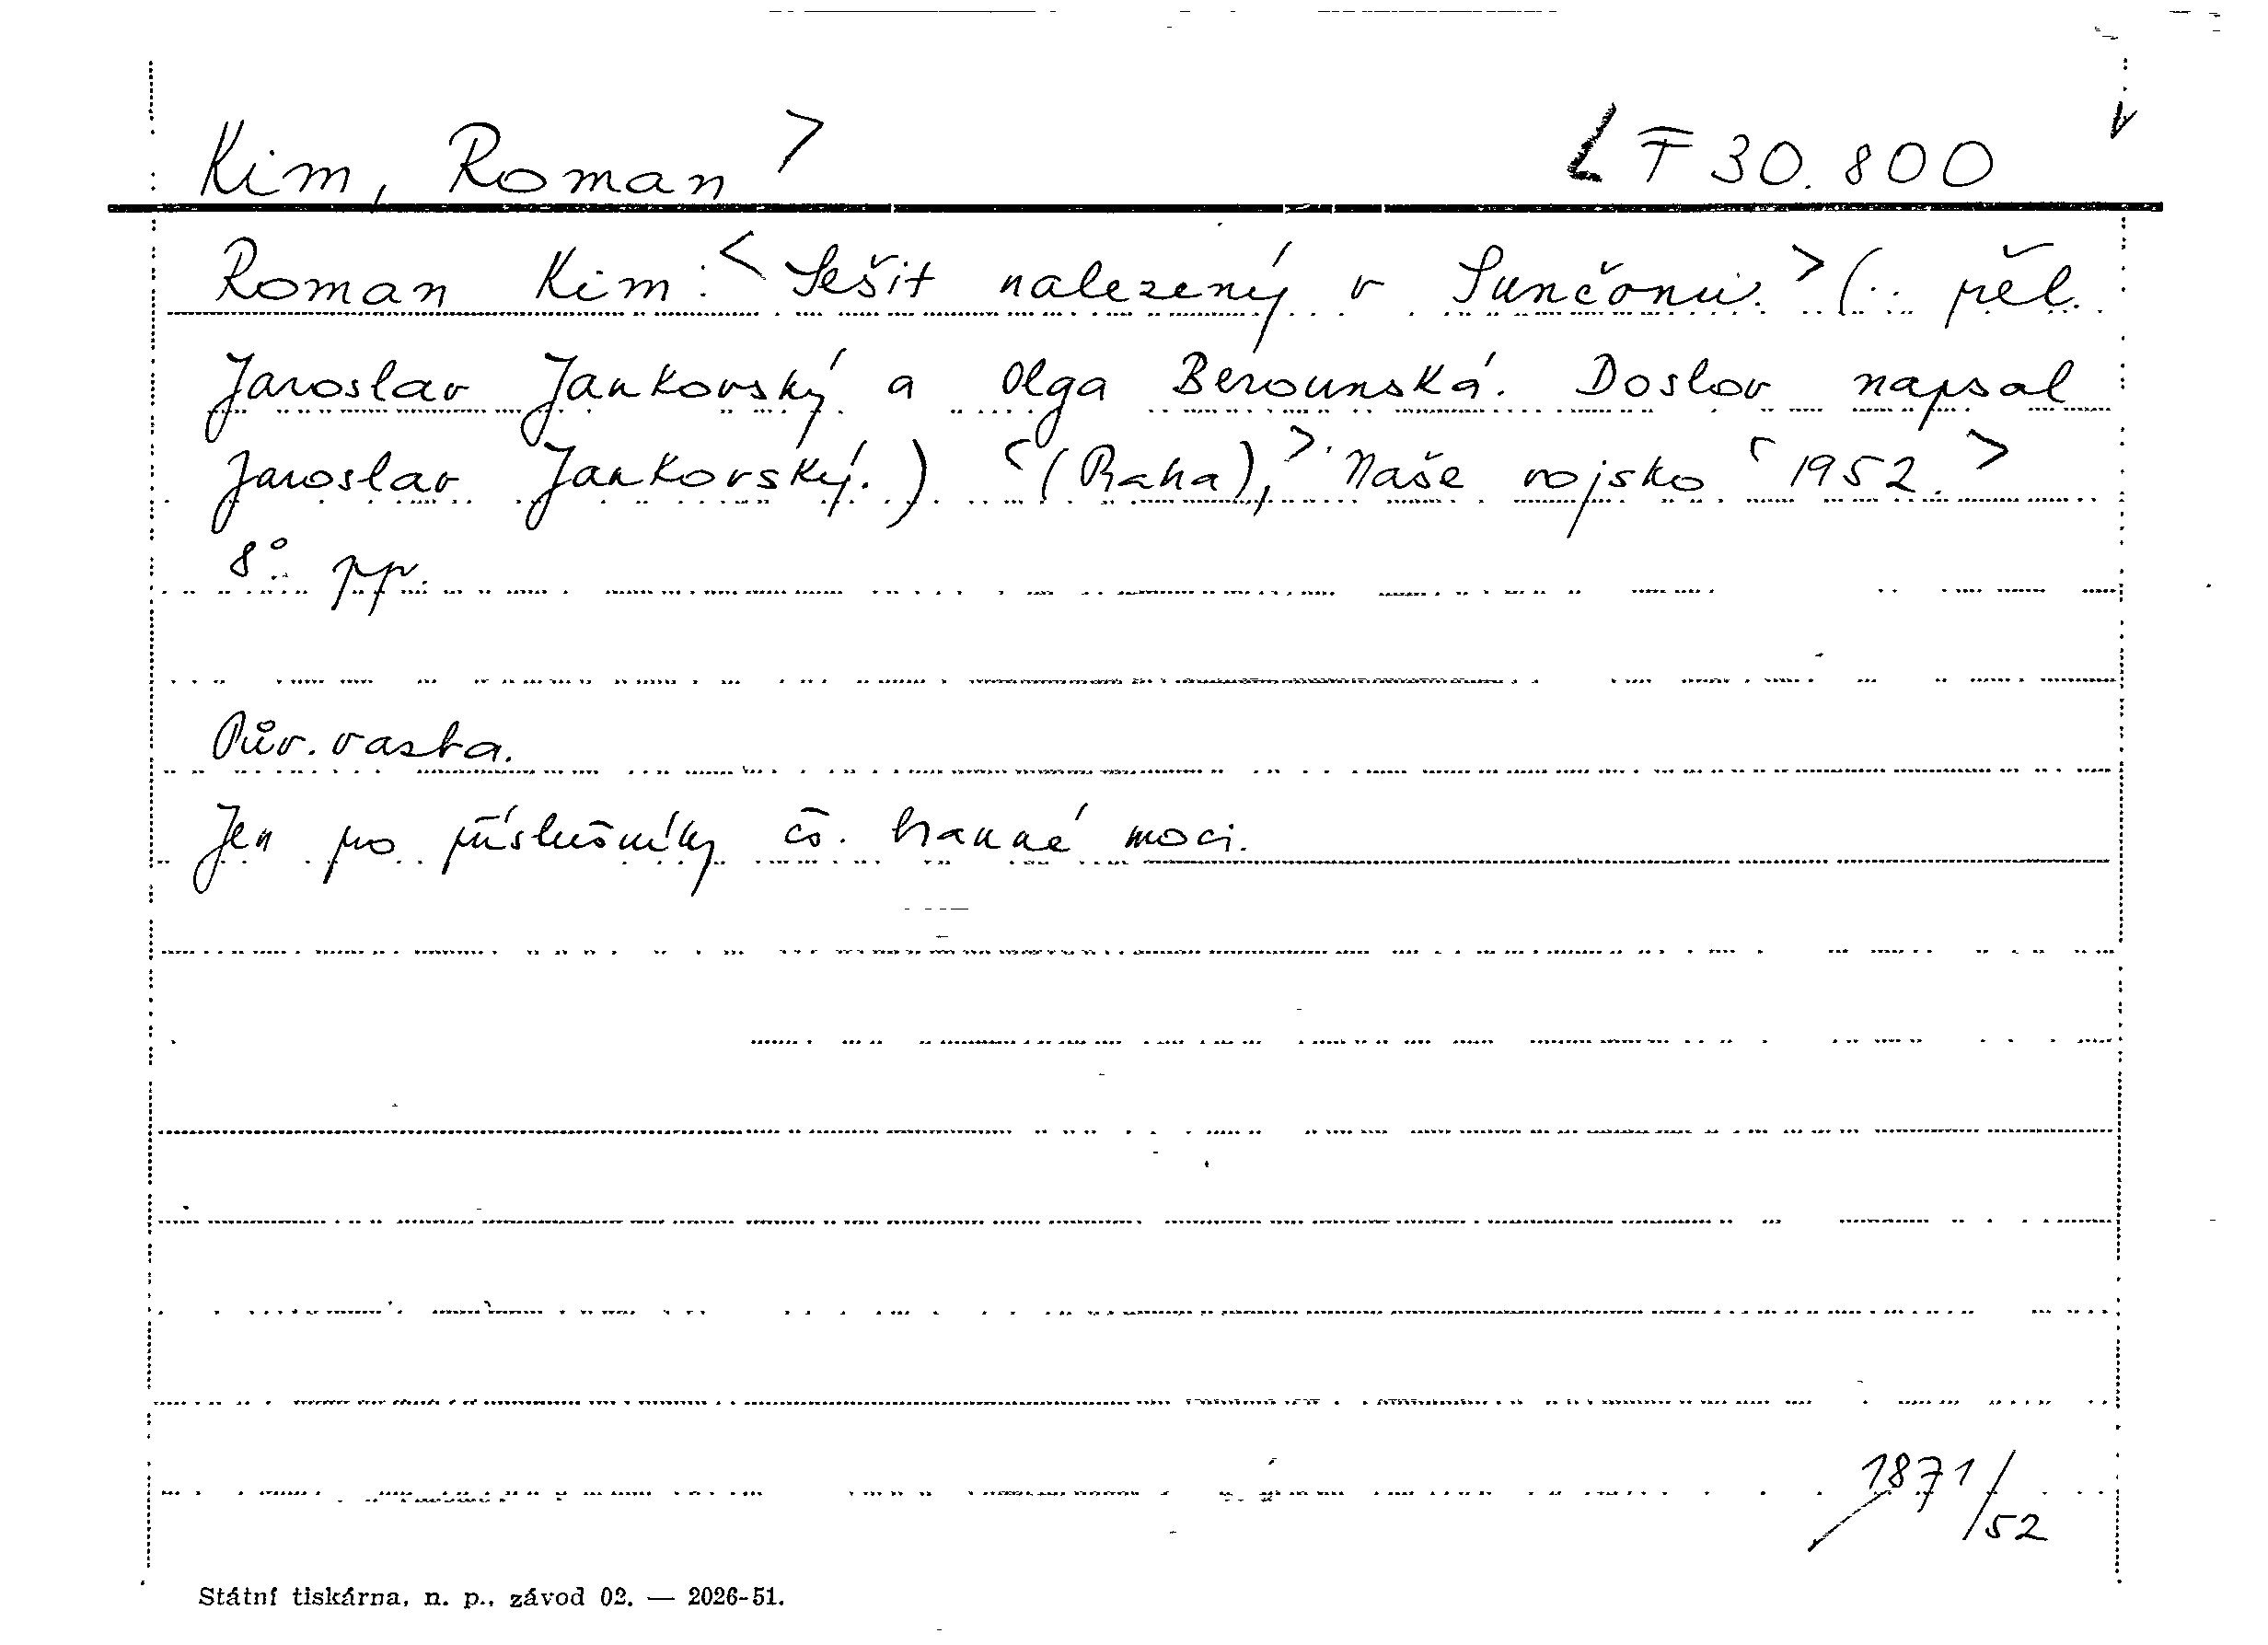 Kim, Roman > < F 30.800 v
Roman Kim: < Sešit nalezený v Sunčonu. > (.. přel.
Jaroslav Jankovský a Olga Berounská. Doslov napsal
Jaroslav Jankovský.) < (Praha), > Naše vojsko < 1952. >
8°. pp.
Pův. vasba.
Jen pro příslušníky čs. branné moci.
1871/52
Státní tiskárna, n. p., závod 02. — 2026-51.